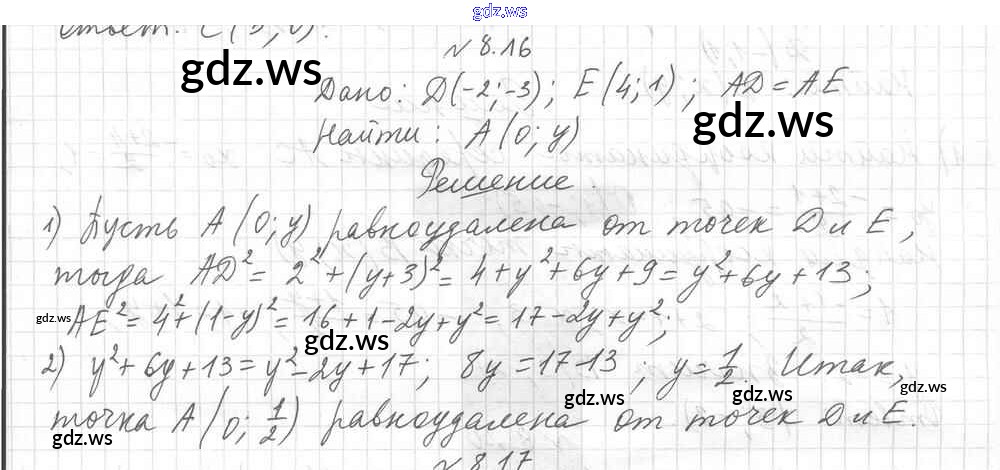 gdz.ws
Ответ: C(3; 0).
N 8.16
gdz.ws
Дано: D(-2; -3); E(4; 1); AD = AE
gdz.ws
Найти: A(0; y)
Решение.
1) Пусть A(0; y) равноудалена от точек D и E,
тогда AD² = 2² + (y+3)² = 4 + y² + 6y + 9 = y² + 6y + 13;
gdz.ws
AE² = 4² + (1-y)² = 16 + 1 - 2y + y² = 17 - 2y + y²;
gdz.ws
2) y² + 6y + 13 = y² - 2y + 17; 8y = 17 - 13; y = 1/2. Итак,
gdz.ws
gdz.ws
точка A(0; 1/2) равноудалена от точек D и E.
gdz.ws
N 8.17